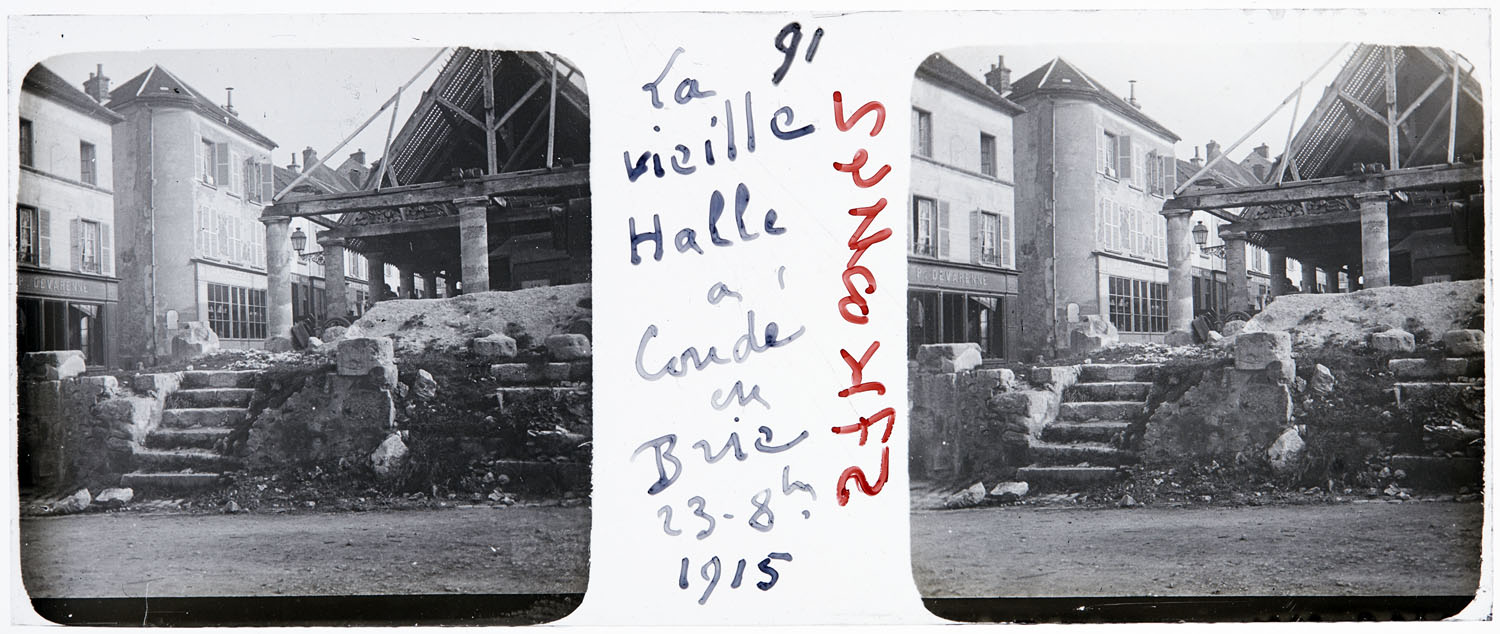 91
La
vieille
Halle
à
Condé
en
Brie
23-8
1915
DEVARENNE
DEVARENNE